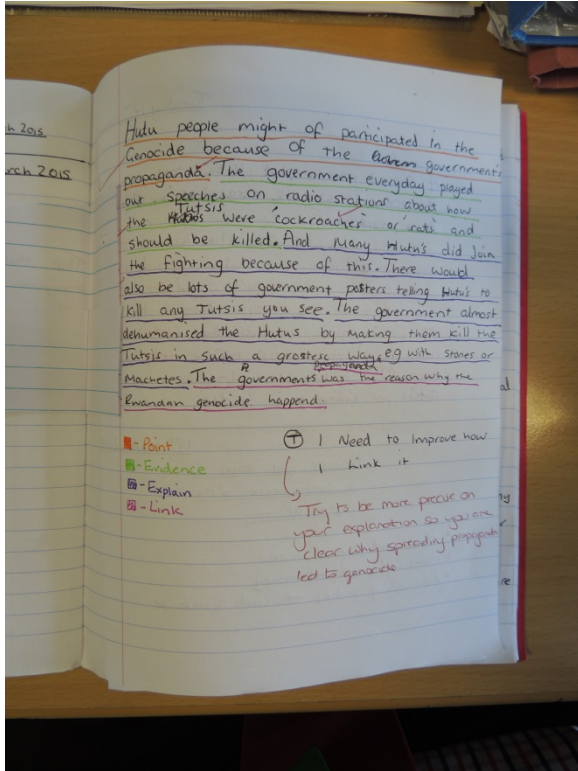 h 2015
rch 2015
Hutu people might of participated in the
Genocide because of the governments
propaganda. The government everyday played
out speeches on radio stations about how
Tutsis
the were 'cockroaches' or rats and
should be killed. And Many Hutu's did Join
the fighting because of this. There would
also be lots of government posters telling Hutu's to
kill any Tutsis you see. The government almost
dehumanised the Hutus by making them kill the
Tutsis in such a grostesc way, eg with stones or
propaganda
Machetes. The governments was the reason why the
Rwandan genocide happend.
- Point
- Evidence
- Explain
- Link
T I Need to Improve how
I Link it
Try to be more precise on
your explanation so you are
clear why spreading propaganda
led to genocide
al
re